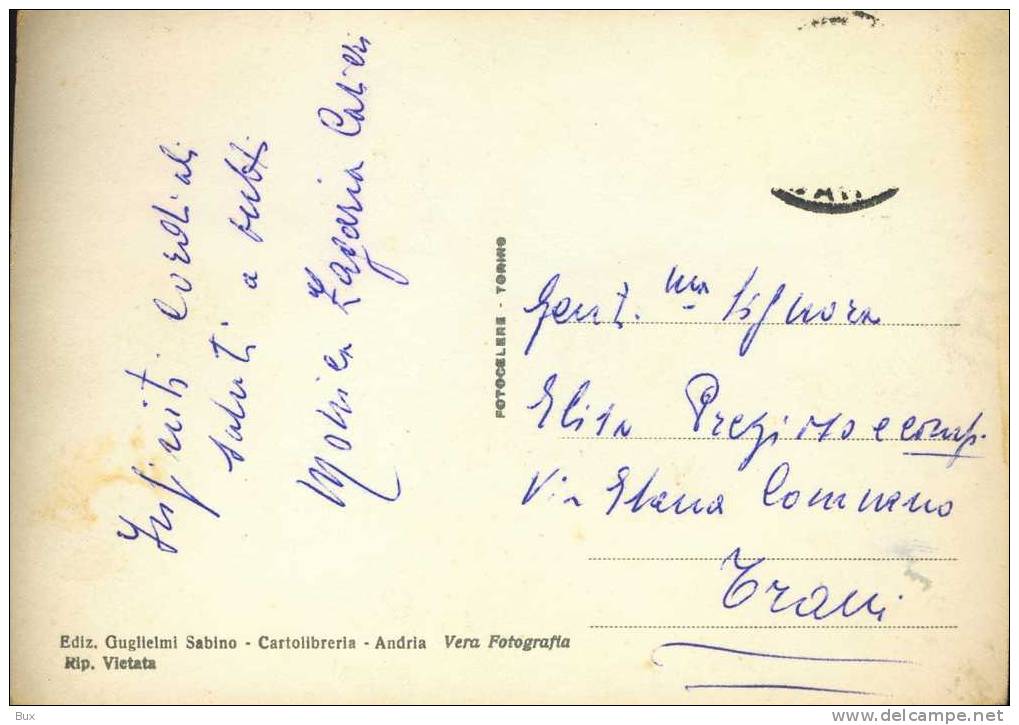 Infiniti cordiali
saluti a tutti
Zagaria
FOTOCELERE - TORINO
Gent.ma Signora
Elisa Preziosa e comp.
Via Elena Comneno
Trani
Ediz. Guglielmi Sabino - Cartolibreria - Andria Vera Fotografia
Rip. Vietata
Bux
www.delcampe.net